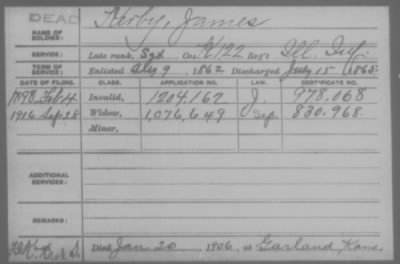 DEAD
NAME OF SOLDIER: Kerby, James
SERVICE: Late rank, Sgt Cos. H 122 Reg't Ill. Inf.
TERM OF SERVICE: Enlisted Aug 9, 1862 Discharged July 15, 1865
DATE OF FILING. CLASS. APPLICATION NO. LAW. CERTIFICATE NO.
1898 Feb 4 Invalid, 1204.167 J. 978.068
1916 Sep 28 Widow, 1,076,649 Sep. 830.968
Minor,
ADDITIONAL SERVICES:
REMARKS:
Died Jan 20, 1906, at Garland, Kans.